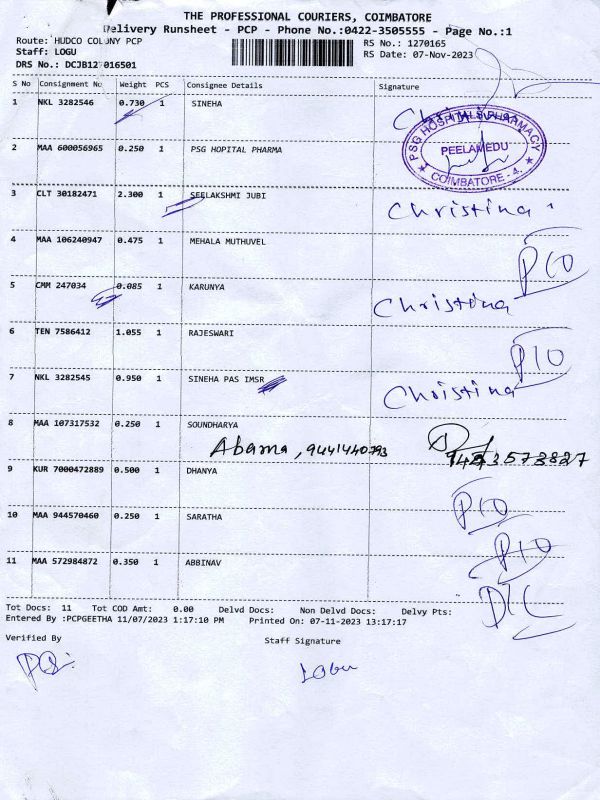 THE PROFESSIONAL COURIERS, COIMBATORE
Delivery Runsheet - PCP - Phone No.:0422-3505555 - Page No.:1
Route: HUDCO COLONY PCP
Staff: LOGU
DRS No.: DCJB127016501
RS No.: 1270165
RS Date: 07-Nov-2023
S No Consignment No Weight PCS Consignee Details Signature
1 NKL 3282546 0.730 1 SINEHA Christina
2 MAA 600056965 0.250 1 PSG HOPITAL PHARMA
PSG HOSPITALS PHARMACY
PEELAMEDU
COIMBATORE - 4.
3 CLT 30182471 2.300 1 SEELAKSHMI JUBI Christina
4 MAA 106240947 0.475 1 MEHALA MUTHUVEL P10
5 CMM 247034 0.085 1 KARUNYA Christina
6 TEN 7586412 1.055 1 RAJESWARI P10
7 NKL 3282545 0.950 1 SINEHA PAS IMSR Christina
8 MAA 107317532 0.250 1 SOUNDHARYA
Abama, 9441440793
9 KUR 7000472889 0.500 1 DHANYA P10
10 MAA 944570460 0.250 1 SARATHA P10
11 MAA 572984872 0.350 1 ABBINAV
Tot Docs: 11 Tot COD Amt: 0.00 Delvd Docs: Non Delvd Docs: Delvy Pts:
Entered By :PCPGEETHA 11/07/2023 1:17:10 PM Printed On: 07-11-2023 13:17:17
Verified By Staff Signature
Logu